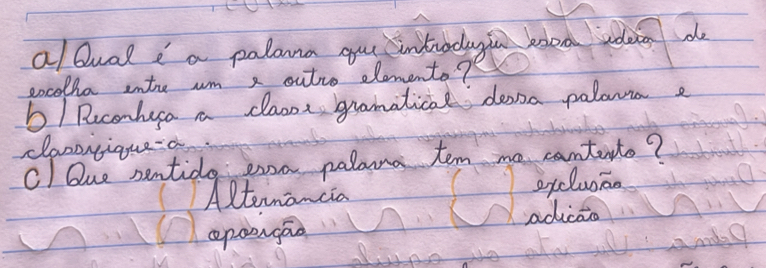 a) Qual é a palavra que introduziu essa ideia de
escolha entre um e outro elemento?
b) Reconheça a classe gramatical dessa palavra e
classifique-a.
c) Que sentido essa palavra tem no contexto?
( ) Alternância ( ) exclusão
( ) oposição ( ) adicão